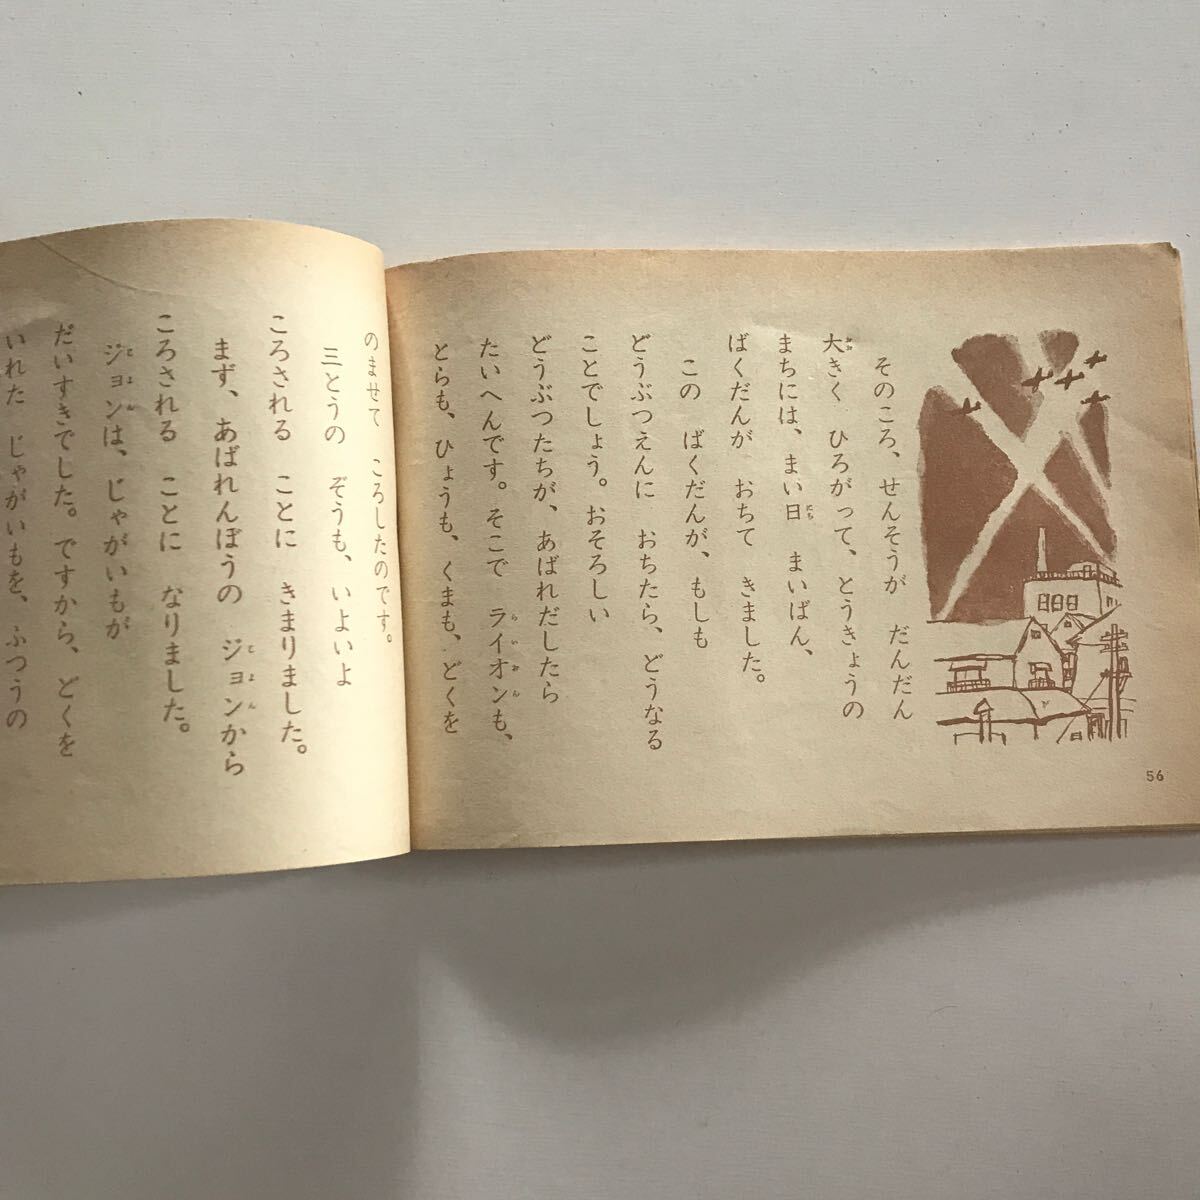 そのころ、せんそうが だんだん
大きく ひろがって、とうきょうの
まちには、まい日 まいばん、
ばくだんが おちて きました。
この ばくだんが、もしも
どうぶつえんに おちたら、どうなる
ことでしょう。おそろしい
どうぶつたちが、あばれだしたら
たいへんです。そこで ライオンも、
とらも、ひょうも、くまも、どくを
56
のませて ころしたのです。
三とうの ぞうも、いよいよ
ころされる ことに きまりました。
まず、あばれんぼうの ジョンから
ころされる ことに なりました。
ジョンは、じゃがいもが
だいすきでした。ですから、どくを
いれた じゃがいもを、ふつうの